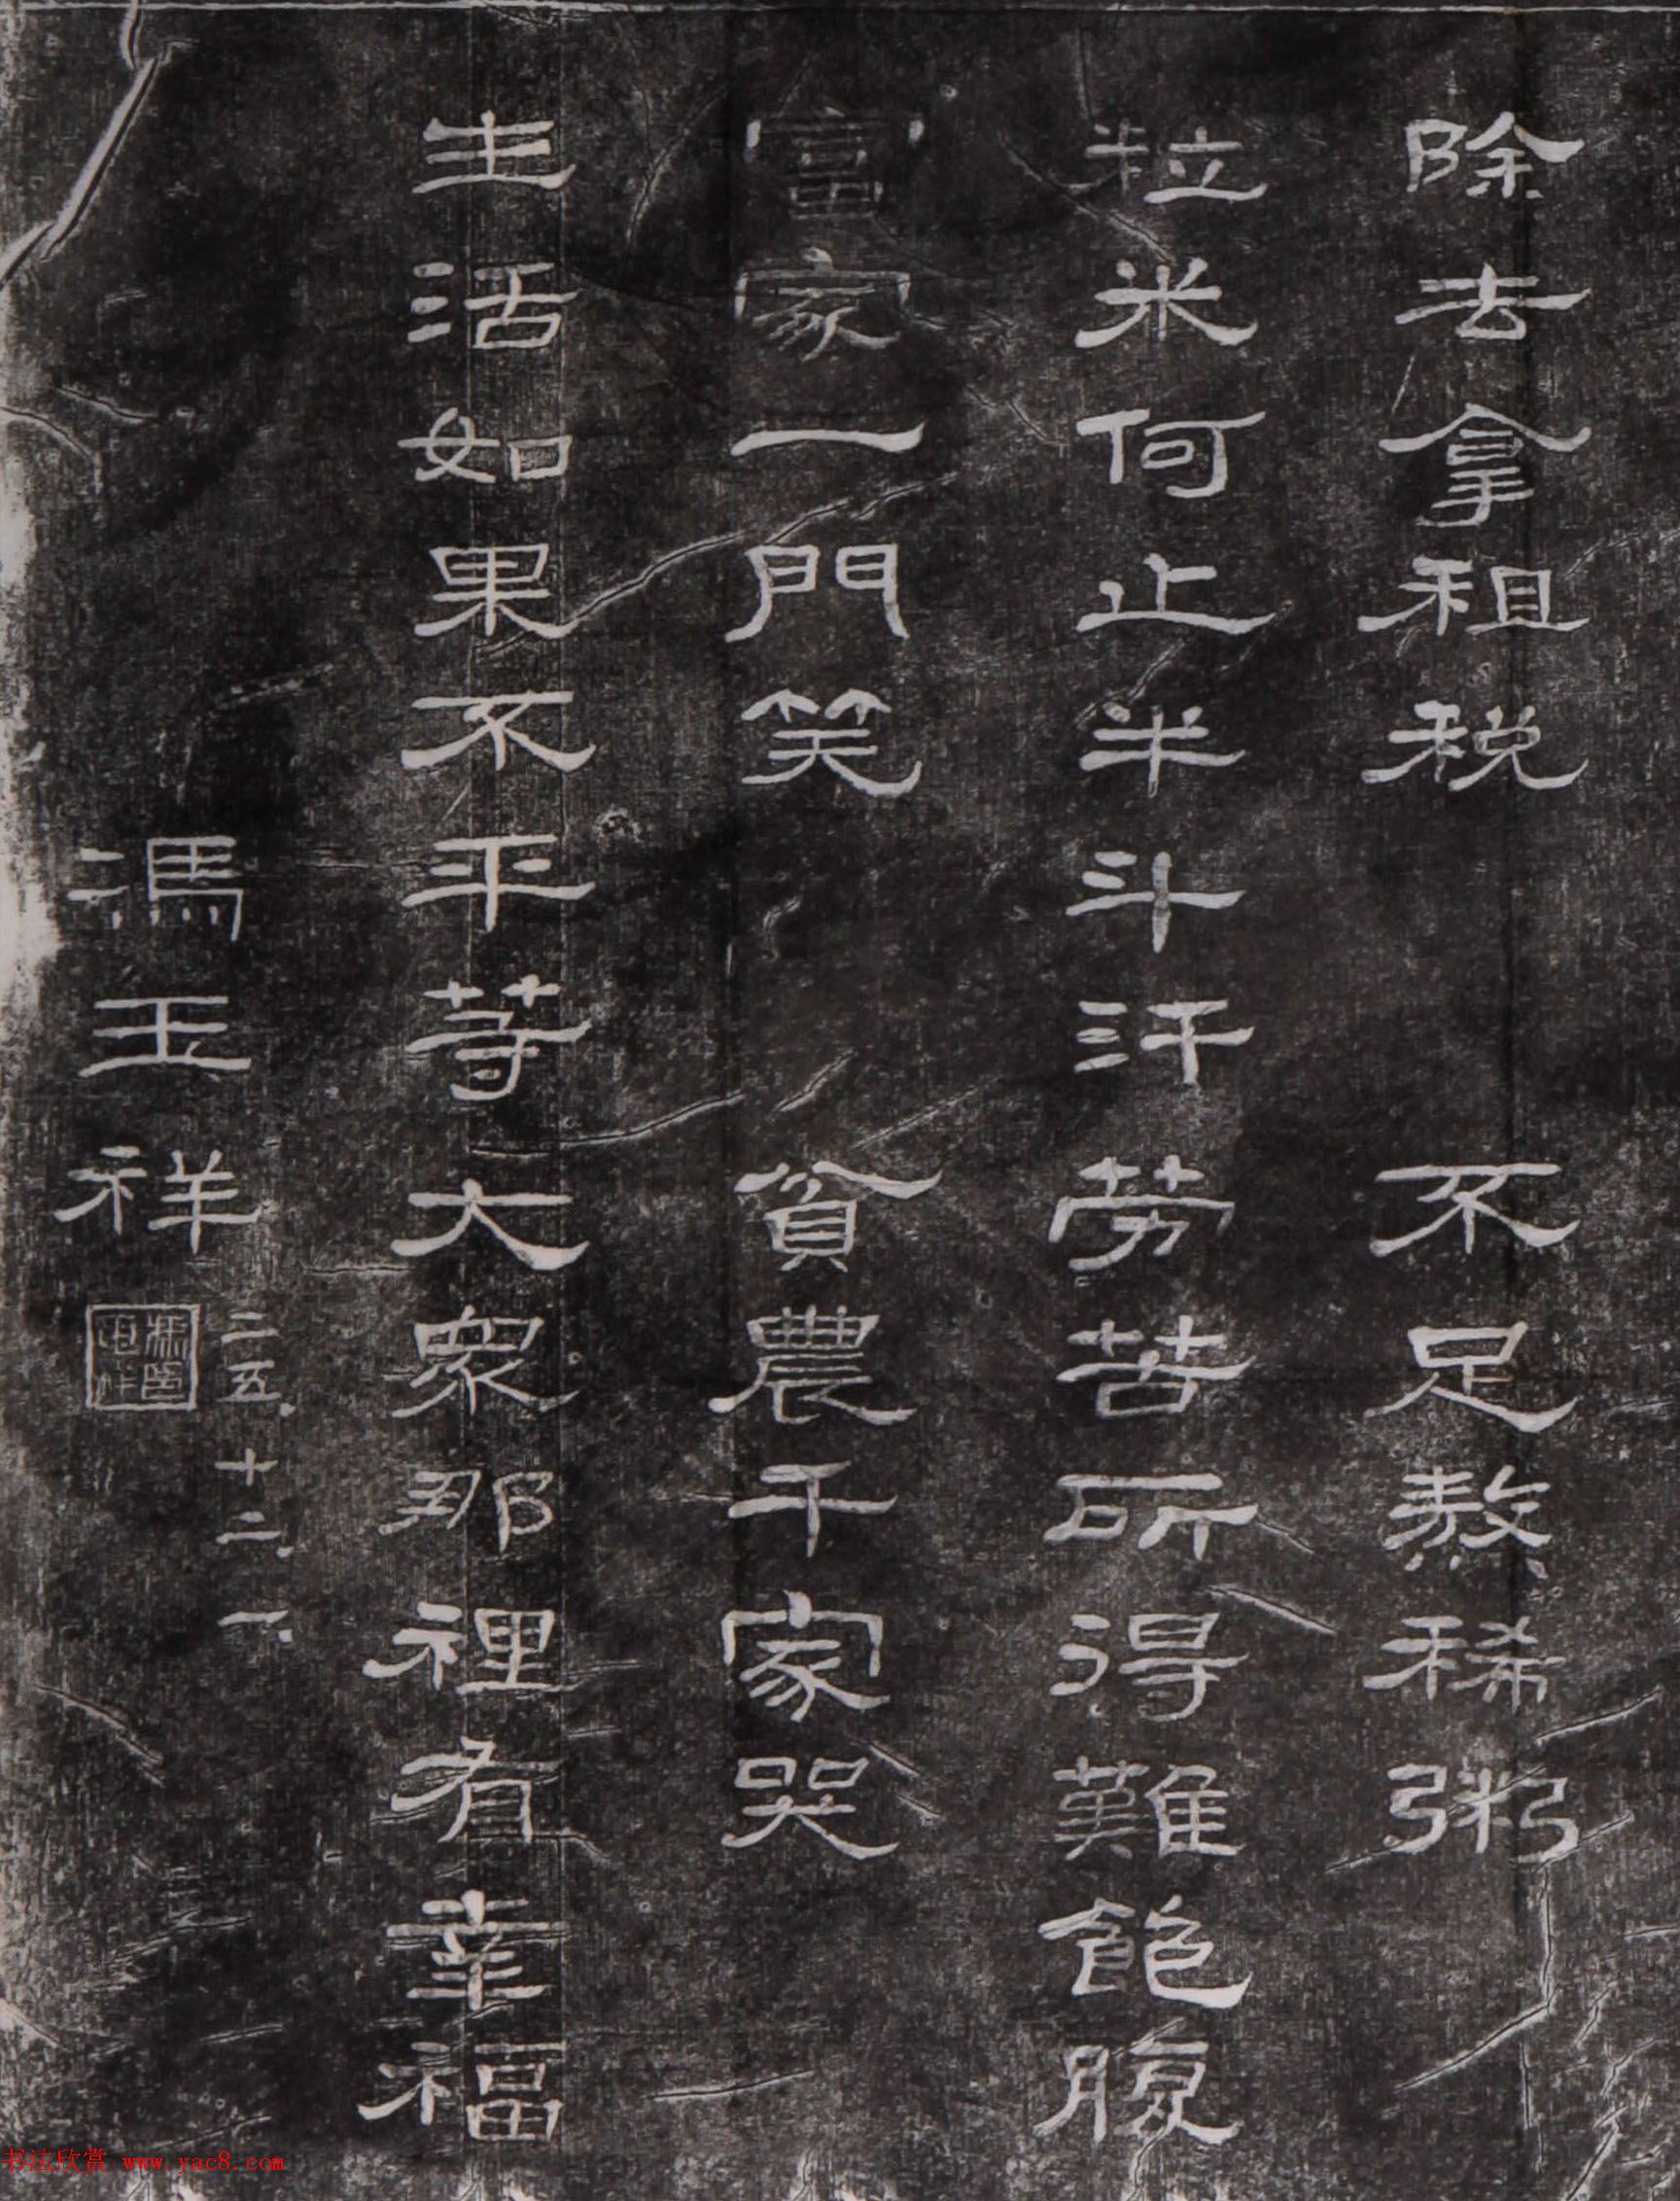 除去拿租税 不足熬稀粥
粒米何止半斗汗 劳苦所得難飽腹
富家一門笑 貧農千家哭
生活如果不平等 大眾那裡有幸福
馮玉祥
二五、十二、一、
书法欣赏 www.yac8.com